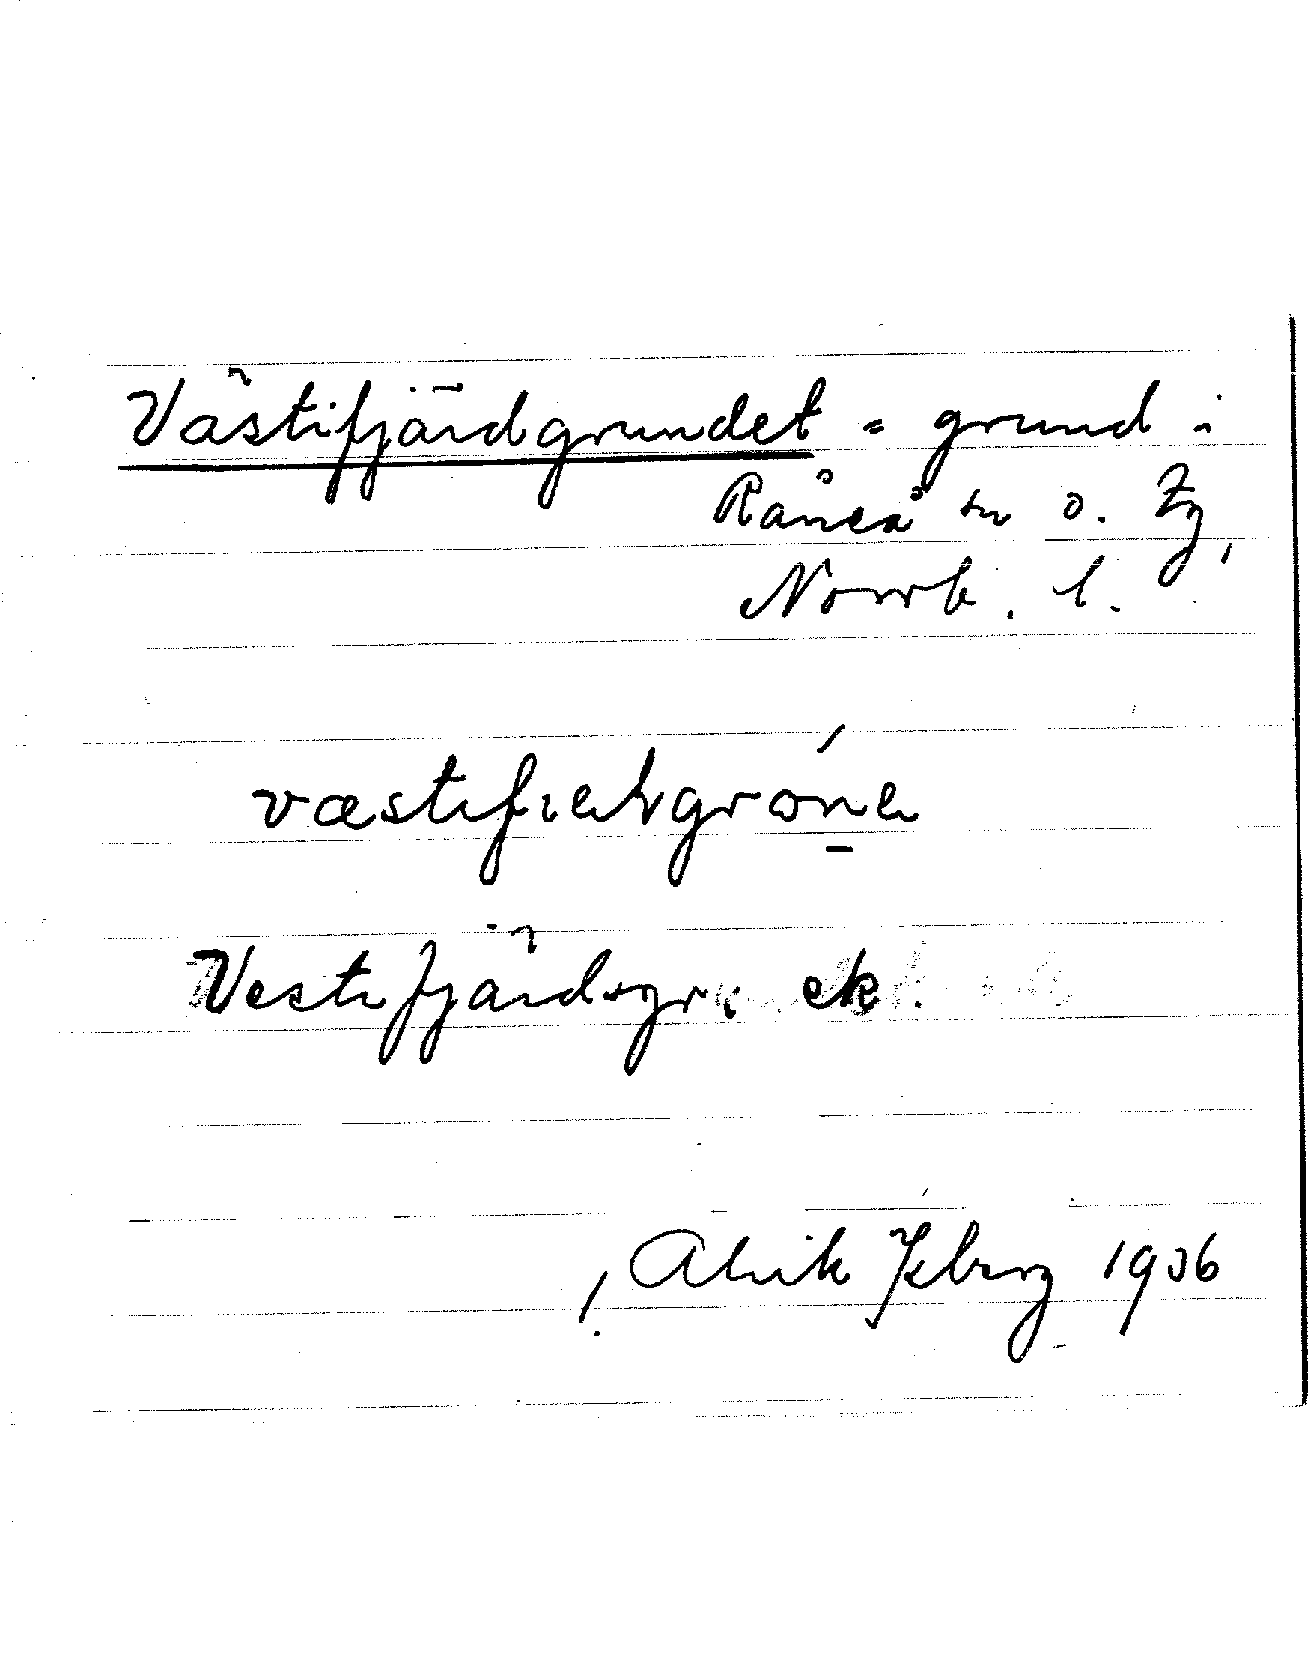 Västifjärdgrundet = grund i
Råneå sn o. tg,
Norrb. l.
væstıfıetvgrón
Vestifjärdsgr. ek.
Alvik 1906